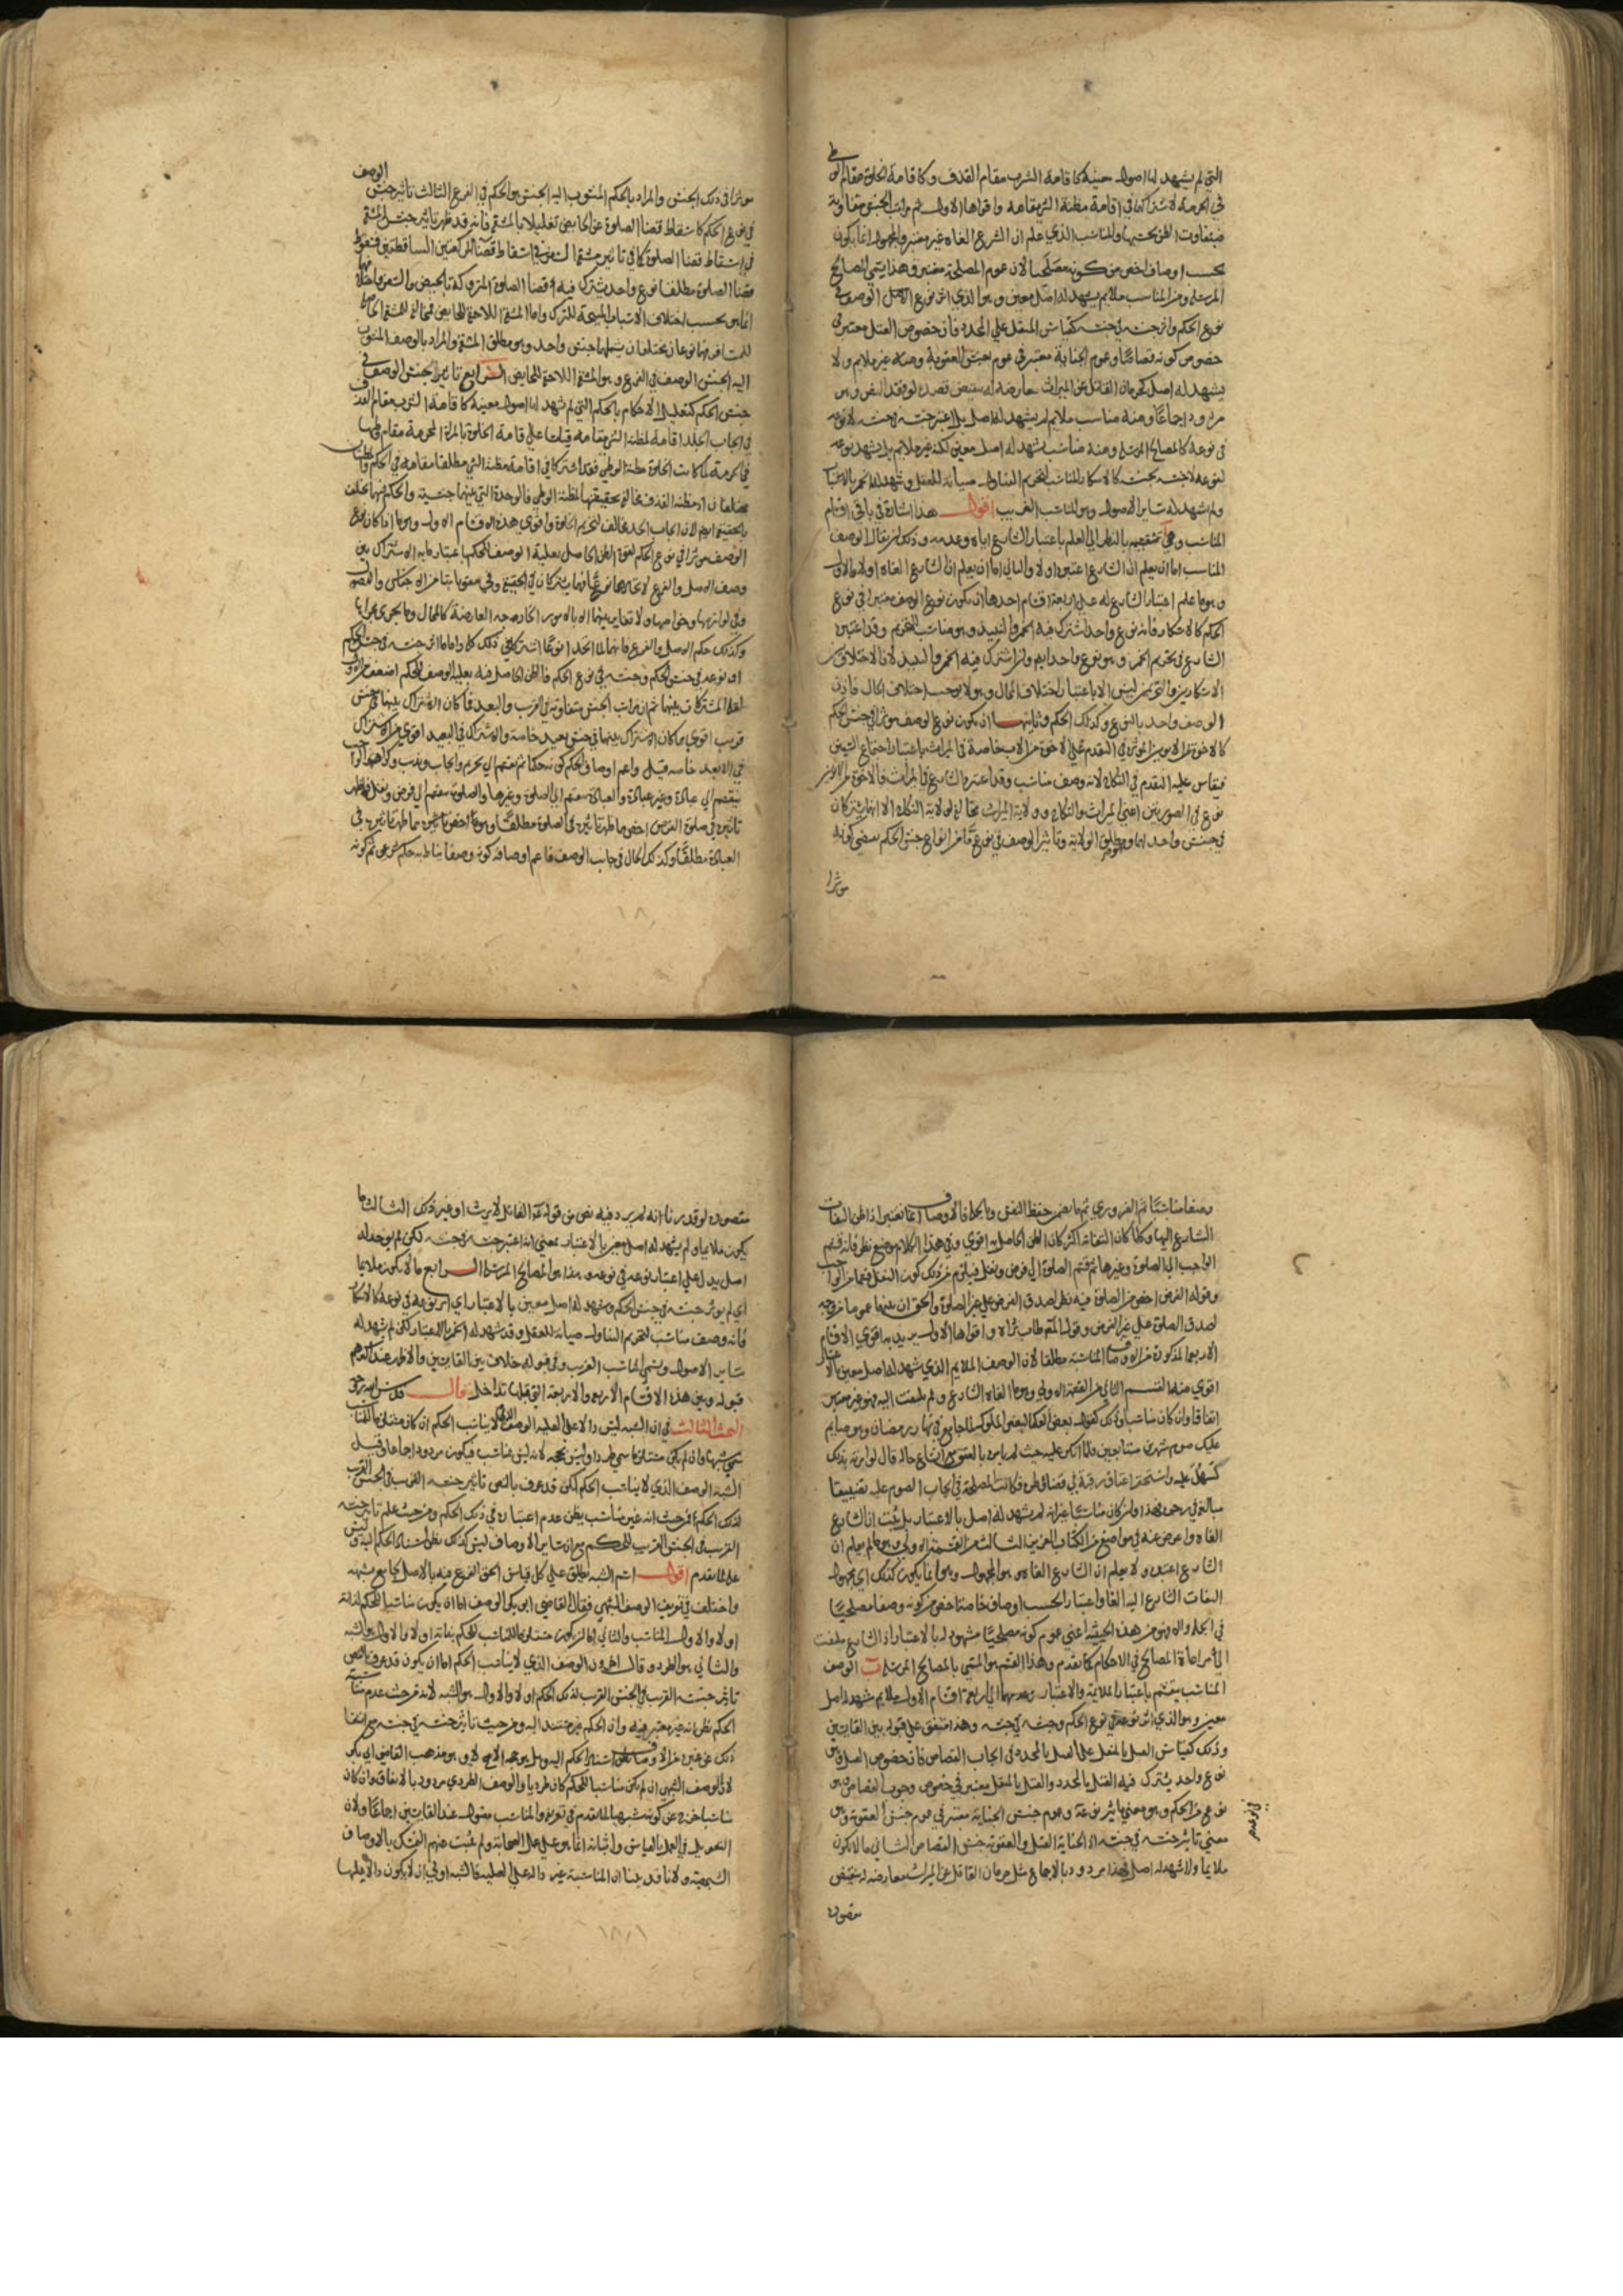 التي لم يشهد لها اصول معينة كاقامة الشرب مقام القذف وكاقامة الخلوة مقام الوطي
في الحرمة لاشتراكهما في اقامة مظنة الشي مقامه واقواها الاول ثم مراتب الجنس متفاوتة
فيتفاوت الظن بحسبها والمناسب الذي علم ان الشرع الغاه غير معتبر والمجهول انما يكون
بحسب اوصاف اخص من كونه مصلحيا لان عموم المصلحة معتبر وهذا يسمي المصالح
المرسلة ومن المناسب ملايم يشهد له اصل معين وهو الذي اثر نوع الوصف في
نوع الحكم واثر جنسه في جنسه كقياس المثقل علي المحدد فان خصوص القتل معتبر في
خصوص كونه قصاصا وعموم الجناية معتبر في عموم جنس العقوبة ومنه غير ملايم ولا
يشهد له اصل كحرمان القاتل عن الميراث معارضة له بنقيض قصده لو فقد النص وهو
مردود اجماعا ومنه مناسب ملايم لم يشهد له اصل بل اعتبر جنسه في جنسه لا نوعه
في نوعه كالمصالح المرسلة ومنه مناسب شهد له اصل معين لكنه غير ملايم بل شهد نوعه
لنوعه لا جنسه بجنسه كالاسكار المناسب لتحريم التناول صيانة للعقل وشهد له الخمر بالاعتبار
ولم يشهد له ساير الاصول وهو المناسب الغريب اقول هذا اشارة في باقي اقسام
المناسب وهي تقسيمه بالنظر الي العلم باعتبار الشارع اياه وعدمه وذلك ان يقال الوصف
المناسب اما ان يعلم ان الشارع اعتبره اولا والثاني اما ان يعلم ان الشارع الغاه اولا والاول
وهو ما علم اعتبار الشارع له علي اربعة اقسام احدها ان يكون نوع الوصف معتبرا في نوع
الحكم كالاسكار فانه نوع واحد اشترك فيه الخمر والنبيذ وهو مناسب للتحريم وقد اعتبره
الشارع في تحريم الخمر وهو نوع واحد ايضا وان اشترك فيه الخمر والنبيذ لان الاختلاف بين
الاسكارين والتحريمين ليس الا باعتبار اختلاف المحال وهو لا يوجب اختلاف الحال فاذن
الوصف واحد بالنوع وكذلك الحكم وثانيها ان يكون نوع الوصف مؤثرا في جنس الحكم
كالاخوة من الابوين المؤثرة في التقدم علي الاخوة من الاب خاصة في الميراث باعتبار اجتماع الشيئين
فيقاس عليه التقدم في النكاح لانه وصف مناسب وقد اعتبره الشارع في الميراث فالاخوة من الابوين
نوع في الصورتين اعني الميراث والنكاح وولاية الميراث مخالفة لولاية النكاح الا انهما يشتركان
في جنس واحد لهما وهو مطلق الولاية وتأثير الوصف في نوع ما من انواع جنس الحكم يقتضي كونه
مؤثرا
الوصف
مؤثرا في ذلك الجنس والمراد بالحكم المنسوب اليه الجنس هو الحكم في الفرع الثالث تاثير جنس
في نوع الحكم كاسقاط قضا الصلوة عن الحايض تعليلا بالمشقة فانه قد ظهر تاثير جنس المشقة
في اسقاط قضا الصلوة كما في تاثير مشقة السفر في اسقاط قضا الركعتين الساقطتين فسقوط
قضا الصلوة مطلقا نوع واحد يشترك فيه قضا الصلوة المتروكة بالحيض والسفر واختلافهما
انما هو بحسب اختلاف الاسباب المبيحة للترك واما المشقة اللاحقة للحايض فمخالفة للمشقة الحاصلة
للمسافر فهما نوعان مختلفان يشملهما جنس واحد وهو مطلق المشقة والمراد بالوصف المنسوب
اليه الجنس الوصف في الفرع وهو المشقة اللاحقة للحايض الرابع تاثير جنس الوصف في
جنس الحكم كتعليل الاحكام بالحكم التي لم تشهد لها اصول معينة كاقامة الشرب مقام القذف
في ايجاب الجلد اقامة لمظنة الشي مقامه قياسا علي اقامة الخلوة بالمراة المحرمة مقام وطيها
في الحرمة لما كانت الخلوة مظنة الوطي فقد اشتركا في اقامة مظنة الشي مطلقا مقامه في الحكم والمظنتان
مختلفتان اذ مظنة القذف مخالفة بحقيقتها لمظنة الوطي فالوحدة التي بينهما جنسية والحكم فيهما مختلف
بالحقيقة ايضا لان ايجاب الحد مخالف لتحريم الخلوة واقوي هذه الاقسام الاول وهو ما اذا كان نوع
الوصف مؤثرا في نوع الحكم لقوة الظن الحاصل بعلية الوصف للحكم باعتبار ما به الاشتراك بين
وصف الاصل والفرع لاتحادهما نوعا فانهما يشتركان في الحقيقة وفي مقوماتها من الاجناس والفصول
وفي لوازمها وخواصها ولا تغاير بينهما الا بالامور الخارجية العارضة كالمحال وما يجري مجراها
وكذلك حكم الاصل والفرع فانهما لما اتحدا نوعا اشتركا في ذلك كله واما ما اثر جنسه في جنس الحكم
او نوعه في جنس الحكم وجنسه في نوع الحكم فالظن الحاصل فيه بعلية الوصف للحكم اضعف من الاول
لقلة المشتركات بينهما ثم ان مراتب الجنس متفاوتة في القرب والبعد فما كان الاشتراك بينهما في جنس
قريب اقوي مما كان الاشتراك بينهما في جنس بعيد خاصة والاشتراك في البعيد اقوي من الاشتراك
في الابعد خاصة قيل واعم اوصاف الحكم كونه حكما ثم ينقسم الي تحريم وايجاب وندب وكراهة والواجب
ينقسم الي عبادة وغير عبادة والعبادة تنقسم الي الصلوة وغيرها والصلوة تنقسم الي فرض ونفل فما ظهر
تاثيره في صلوة الفرض اخص مما ظهر تاثيره في الصلوة مطلقا وهو اخص مما ظهر تاثيره في
العبادة مطلقا وكذلك الحال في جانب الوصف فاعم اوصافه كونه وصفا يناط به حكم شرعي ثم كونه
وصفا مناسبا ثم الضروري ثم ما يضمن حفظ النفس وبالجملة فالاوصاف انما تعتبر اذا ظن التفات
الشارع اليها وكلما كان التفاته اكثر كان الظن الحاصل به اقوي وفي هذا الكلام موضع نظر فانه قسم
الواجب الي الصلوة وغيرها ثم قسم الصلوة الي فرض ونفل فيلزم من ذلك كون النفل قسما من الواجب
وقوله الفرض اخص من الصلوة فيه نظر لصدق الفرض علي غير الصلوة والحق ان بينهما عموما من وجه
لصدق الصلوة علي غير الفرض وقول المصنف طاب ثراه واقواها الاول يريد به اقوي الاقسام
الاربعة المذكورة من الاوصاف المناسبة مطلقا لان الوصف الملايم الذي شهد له اصل معين بالاعتبار
اقوي منها القسم الثاني من القسمة الاولي وهو ما الغاه الشارع ولم يلتفت اليه فهو غير معتبر
اتفاقا وان كان مناسبا وذلك كقول بعض العلما لبعض الملوك لما جامع في نهار رمضان وهو صايم
عليك صوم شهرين متتابعين فلما انكر عليه حيث لم يامره بالعتق مع اتساع حاله قال لو امرته بذلك
لسهل عليه واستحقر اعتاق رقبة في قضا وطره فكانت المصلحة في ايجاب الصوم عليه
مبالغة في زجره فهذا وان كان مناسبا غير انه لم يشهد له اصل بالاعتبار بل ثبت ان الشارع
الغاه واعرض عنه في مواضع من الكتاب العزيز الثالث من القسمة الاولي وهو ما لم يعلم ان
الشارع اعتبره ولا يعلم ان الشارع الغاه وهو المجهول وهو انما يكون كذلك اي مجهول
التفات الشارع اليه الغا واعتبارا بحسب اوصاف خاصة اخص من كونه وصفا مصلحيا
في الجملة والا فهو من هذه الحيثية اعني عموم كونه مصلحيا مشهود له بالاعتبار اذ الشارع يلتفت
الي مراعاة المصالح في الاحكام كما تقدم وهذا القسم هو المسمي بالمصالح المرسلة الوصف
المناسب ينقسم باعتبار الملايمة والاعتبار وعدمهما الي اربعة اقسام الاول ملايم شهد له اصل
معين وهو الذي اثر نوعه في نوع الحكم وجنسه في جنسه وهذا متفق علي قبوله بين القايسين
وذلك كقياس القتل بالمثقل علي القتل بالمحدد في ايجاب القصاص فان خصوص القتل وهو
نوع واحد يشترك فيه القتل بالمحدد والقتل بالمثقل معتبر في خصوص وجوب القصاص وهو
نوع من الحكم وهو معني تاثير نوعه وعموم جنس الجناية معتبر في عموم جنس العقوبة وهو
معني تاثير جنسه في جنسه اذ الجناية جنس القتل والعقوبة جنس القصاص الثاني ما لا يكون
ملايما ولا شهد له اصل فهذا مردود بالاجماع مثل حرمان القاتل عن الميراث معارضة له بنقيض
مقصوده
مقصوده لو قدرنا انه لم يرد فيه نص من قوله القاتل لا يرث او غير ذلك الثالث ما
يكون ملايما ولم يشهد له اصل معين بالاعتبار بمعني انه اعتبر جنسه في جنسه لكن لم يوجد له
اصل يدل علي اعتبار نوعه في نوعه وهذا هو المصالح المرسلة الرابع ما لا يكون ملايما
اي لم يؤثر جنسه في جنس الحكم وشهد له اصل معين بالاعتبار اي اثر نوعه في نوعه كالاسكار
فانه وصف مناسب لتحريم التناول صيانة للعقل وقد شهد له الخمر بالاعتبار لكن لم يشهد له
ساير الاصول ويسمي المناسب الغريب وفي قبوله خلاف بين القايسين والاظهر عندهم
قبوله وبين هذه الاقسام الاربعة والاربعة التي قبلها تداخل قال قدس الله روحه
البحث الثالث في ان الشبه ليس دالا علي العلية الوصف الذي لا يناسب الحكم ان كان مستلزما للمناسب
سمي شبها وان لم يكن مستلزما سمي طردا وليس بحجة لانه ليس بمناسب فيكون مردودا اجماعا وقيل
الشبه الوصف الذي لا يناسب الحكم لكن قد عرف بالنص تاثير جنسه القريب في الجنس القريب
لذلك الحكم فمن حيث انه غير مناسب يظن عدم اعتباره في ذلك الحكم ومن حيث علم تاثير جنسه
القريب في الجنس القريب للحكم مع ان ساير الاوصاف ليس كذلك يظن استناد الحكم اليه وليس
علة لما تقدم اقول اسم الشبه يطلق علي كل قياس الحق الفرع فيه بالاصل لجامع يشبهه
واختلف في تعريف الوصف الشبهي فقال القاضي ابو بكر الوصف اما ان يكون مناسبا للحكم لذاته
اولا والاول المناسب والثاني اما ان يكون مستلزما للمناسب للحكم بذاته اولا والاول هو الشبه
والثاني هو الطرد وقال اخرون الوصف الذي لا يناسب الحكم اما ان يكون قد عرف بالنص
تاثير جنسه القريب في الجنس القريب لذلك الحكم اولا والاول هو الشبه لانه من حيث عدم مناسبته
الحكم يظن انه غير معتبر فيه وان الحكم غير مستند اليه ومن حيث تاثير جنسه في جنسه مع انتفا
ذلك عن غيره من الاوصاف يظن استناد الحكم اليه وهل هو حجة ام لا وهو مذهب القاضي ابي بكر
لان الوصف الشبهي ان لم يكن مناسبا للحكم كان طرديا والوصف الطردي مردود بالاتفاق وان كان
مناسبا خرج عن كونه شبهيا لما تقدم في تعريفه والمناسب مقبول عند القايسين اجماعا ولان
التعويل في العمل بالقياس واثباته انما هو علي عمل الصحابة ولم يثبت عنهم التمسك بالاوصاف
الشبهية ولانا قد بينا ان المناسبة غير دالة علي العلية فالشبه اولي ان لا يكون دالا عليها